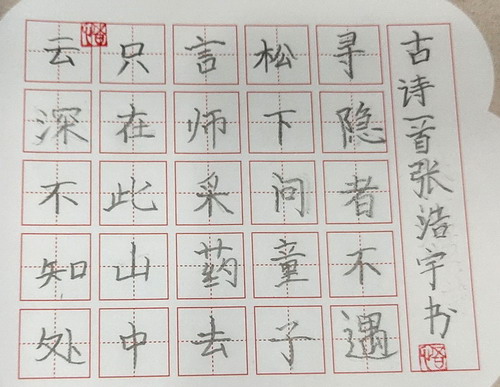 古诗一首张浩宇书
寻隐者不遇
松下问童子
言师采药去
只在此山中
云深不知处